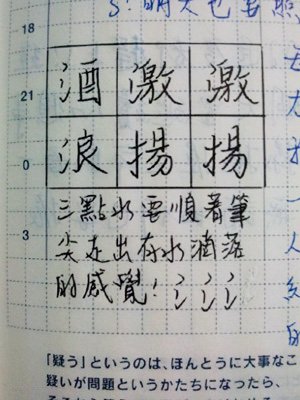 18
21
酒 激 激
0
浪 揚 揚
三點水要順著筆
3
尖走出有水滴落
的感覺! 氵氵氵
「疑う」というのは、ほんとうに大事なこ
疑いが問題というかたちになったら、